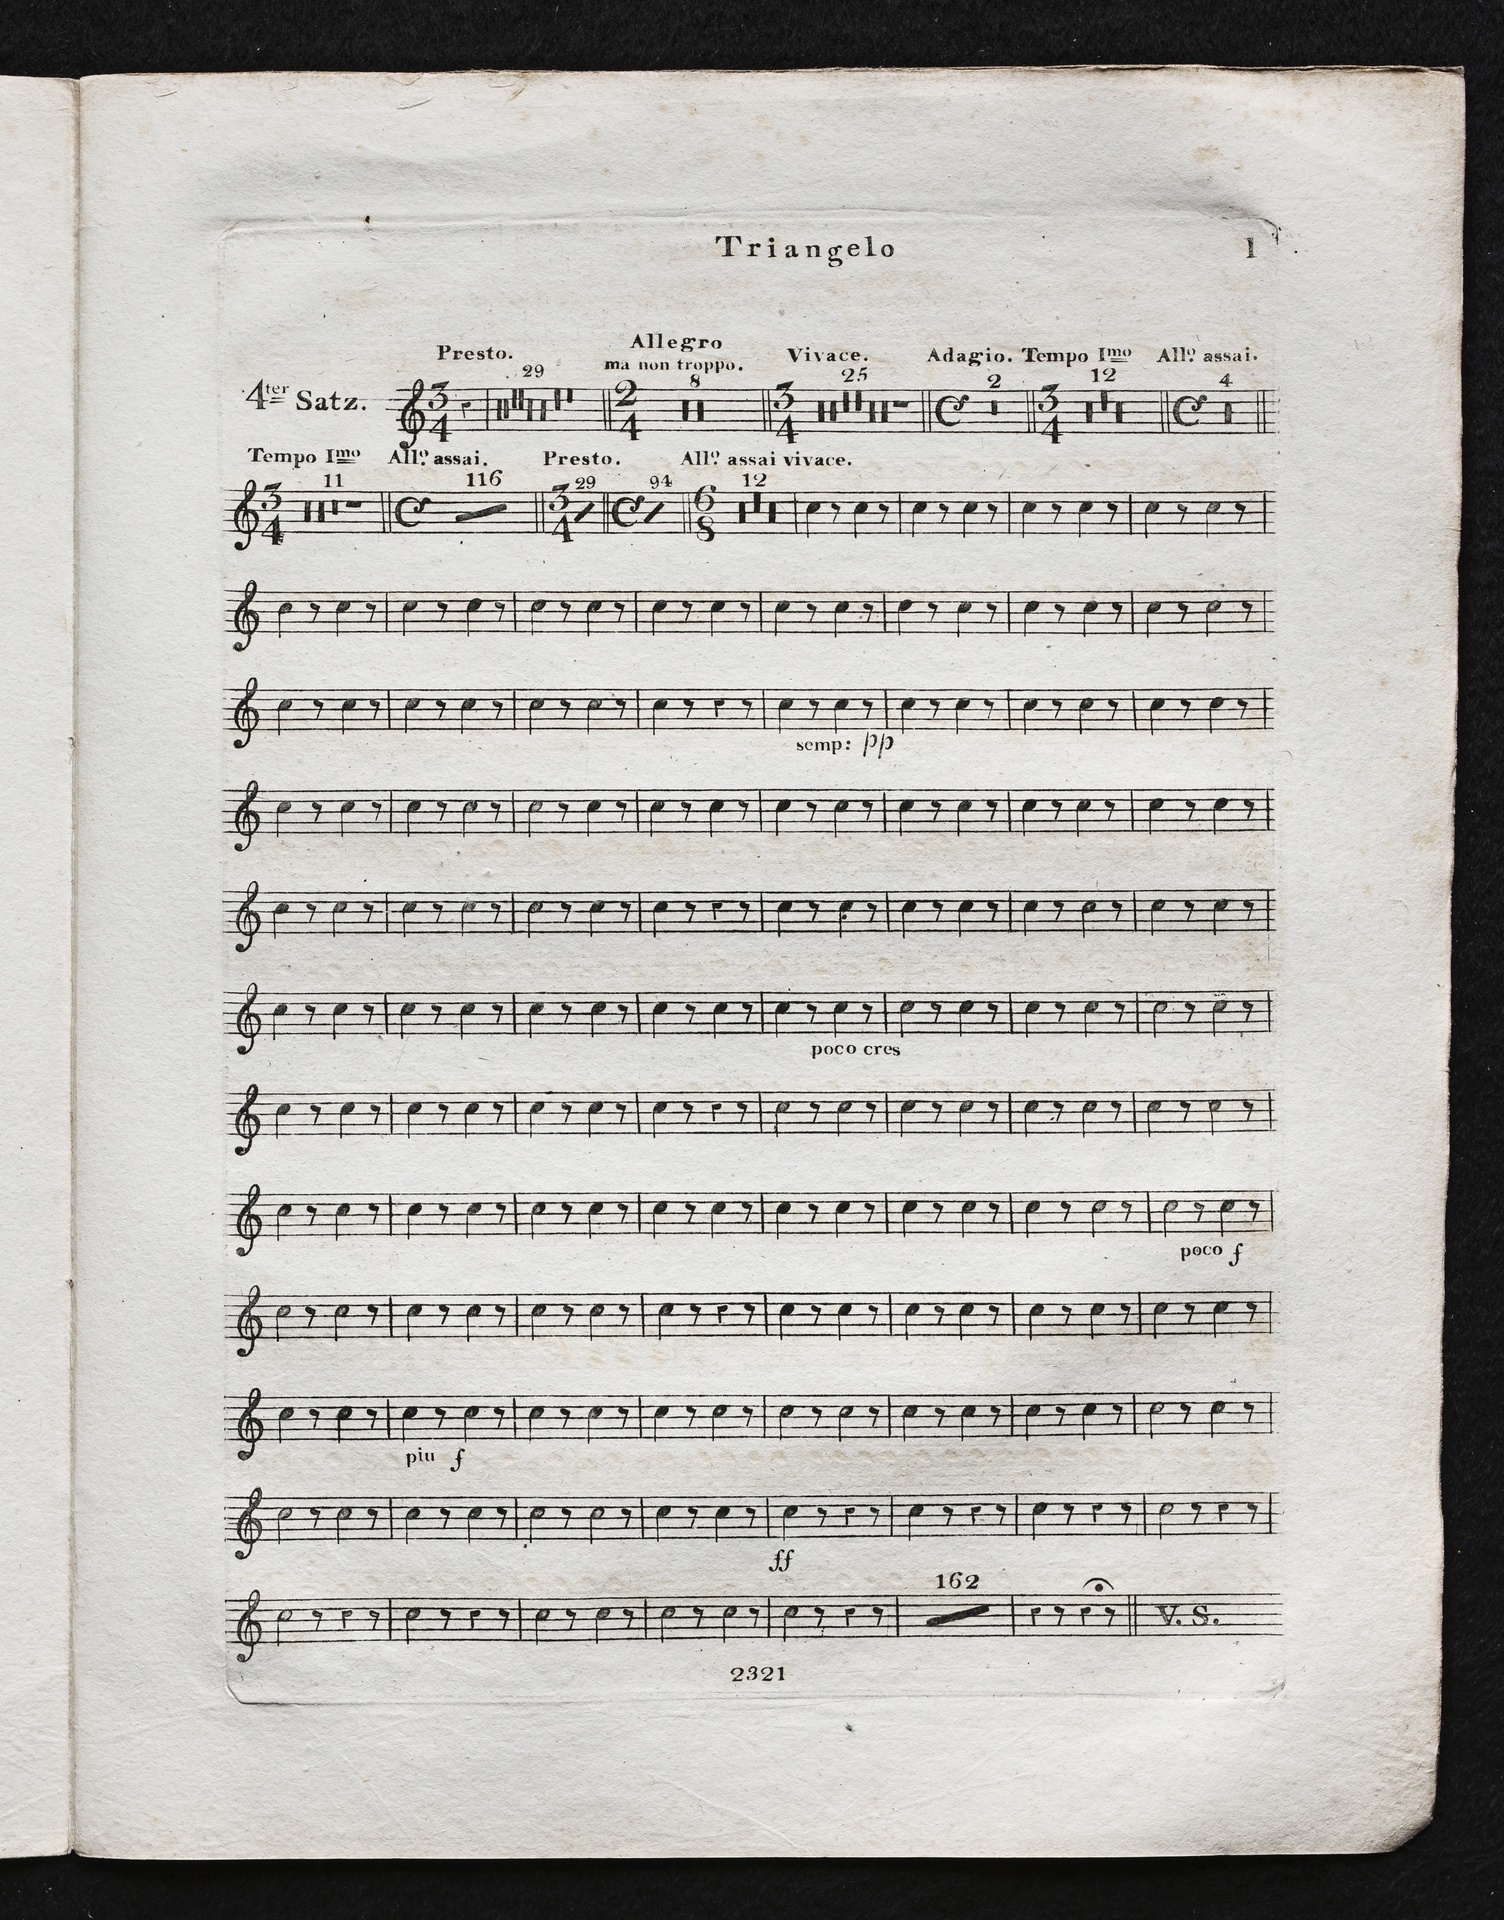 Triangelo 1
Presto. Allegro ma non troppo. Vivace. Adagio. Tempo Imo All.o assai.
29 8 25 2 12 4
4ter Satz. 3/4 2/4 3/4 3/4
Tempo Imo All.o assai. Presto. All.o assai vivace.
11 116 29 94 12
3/4 3/4 6/8
semp: pp
poco cres
poco f
piu f
ff
162
V. S.
2321